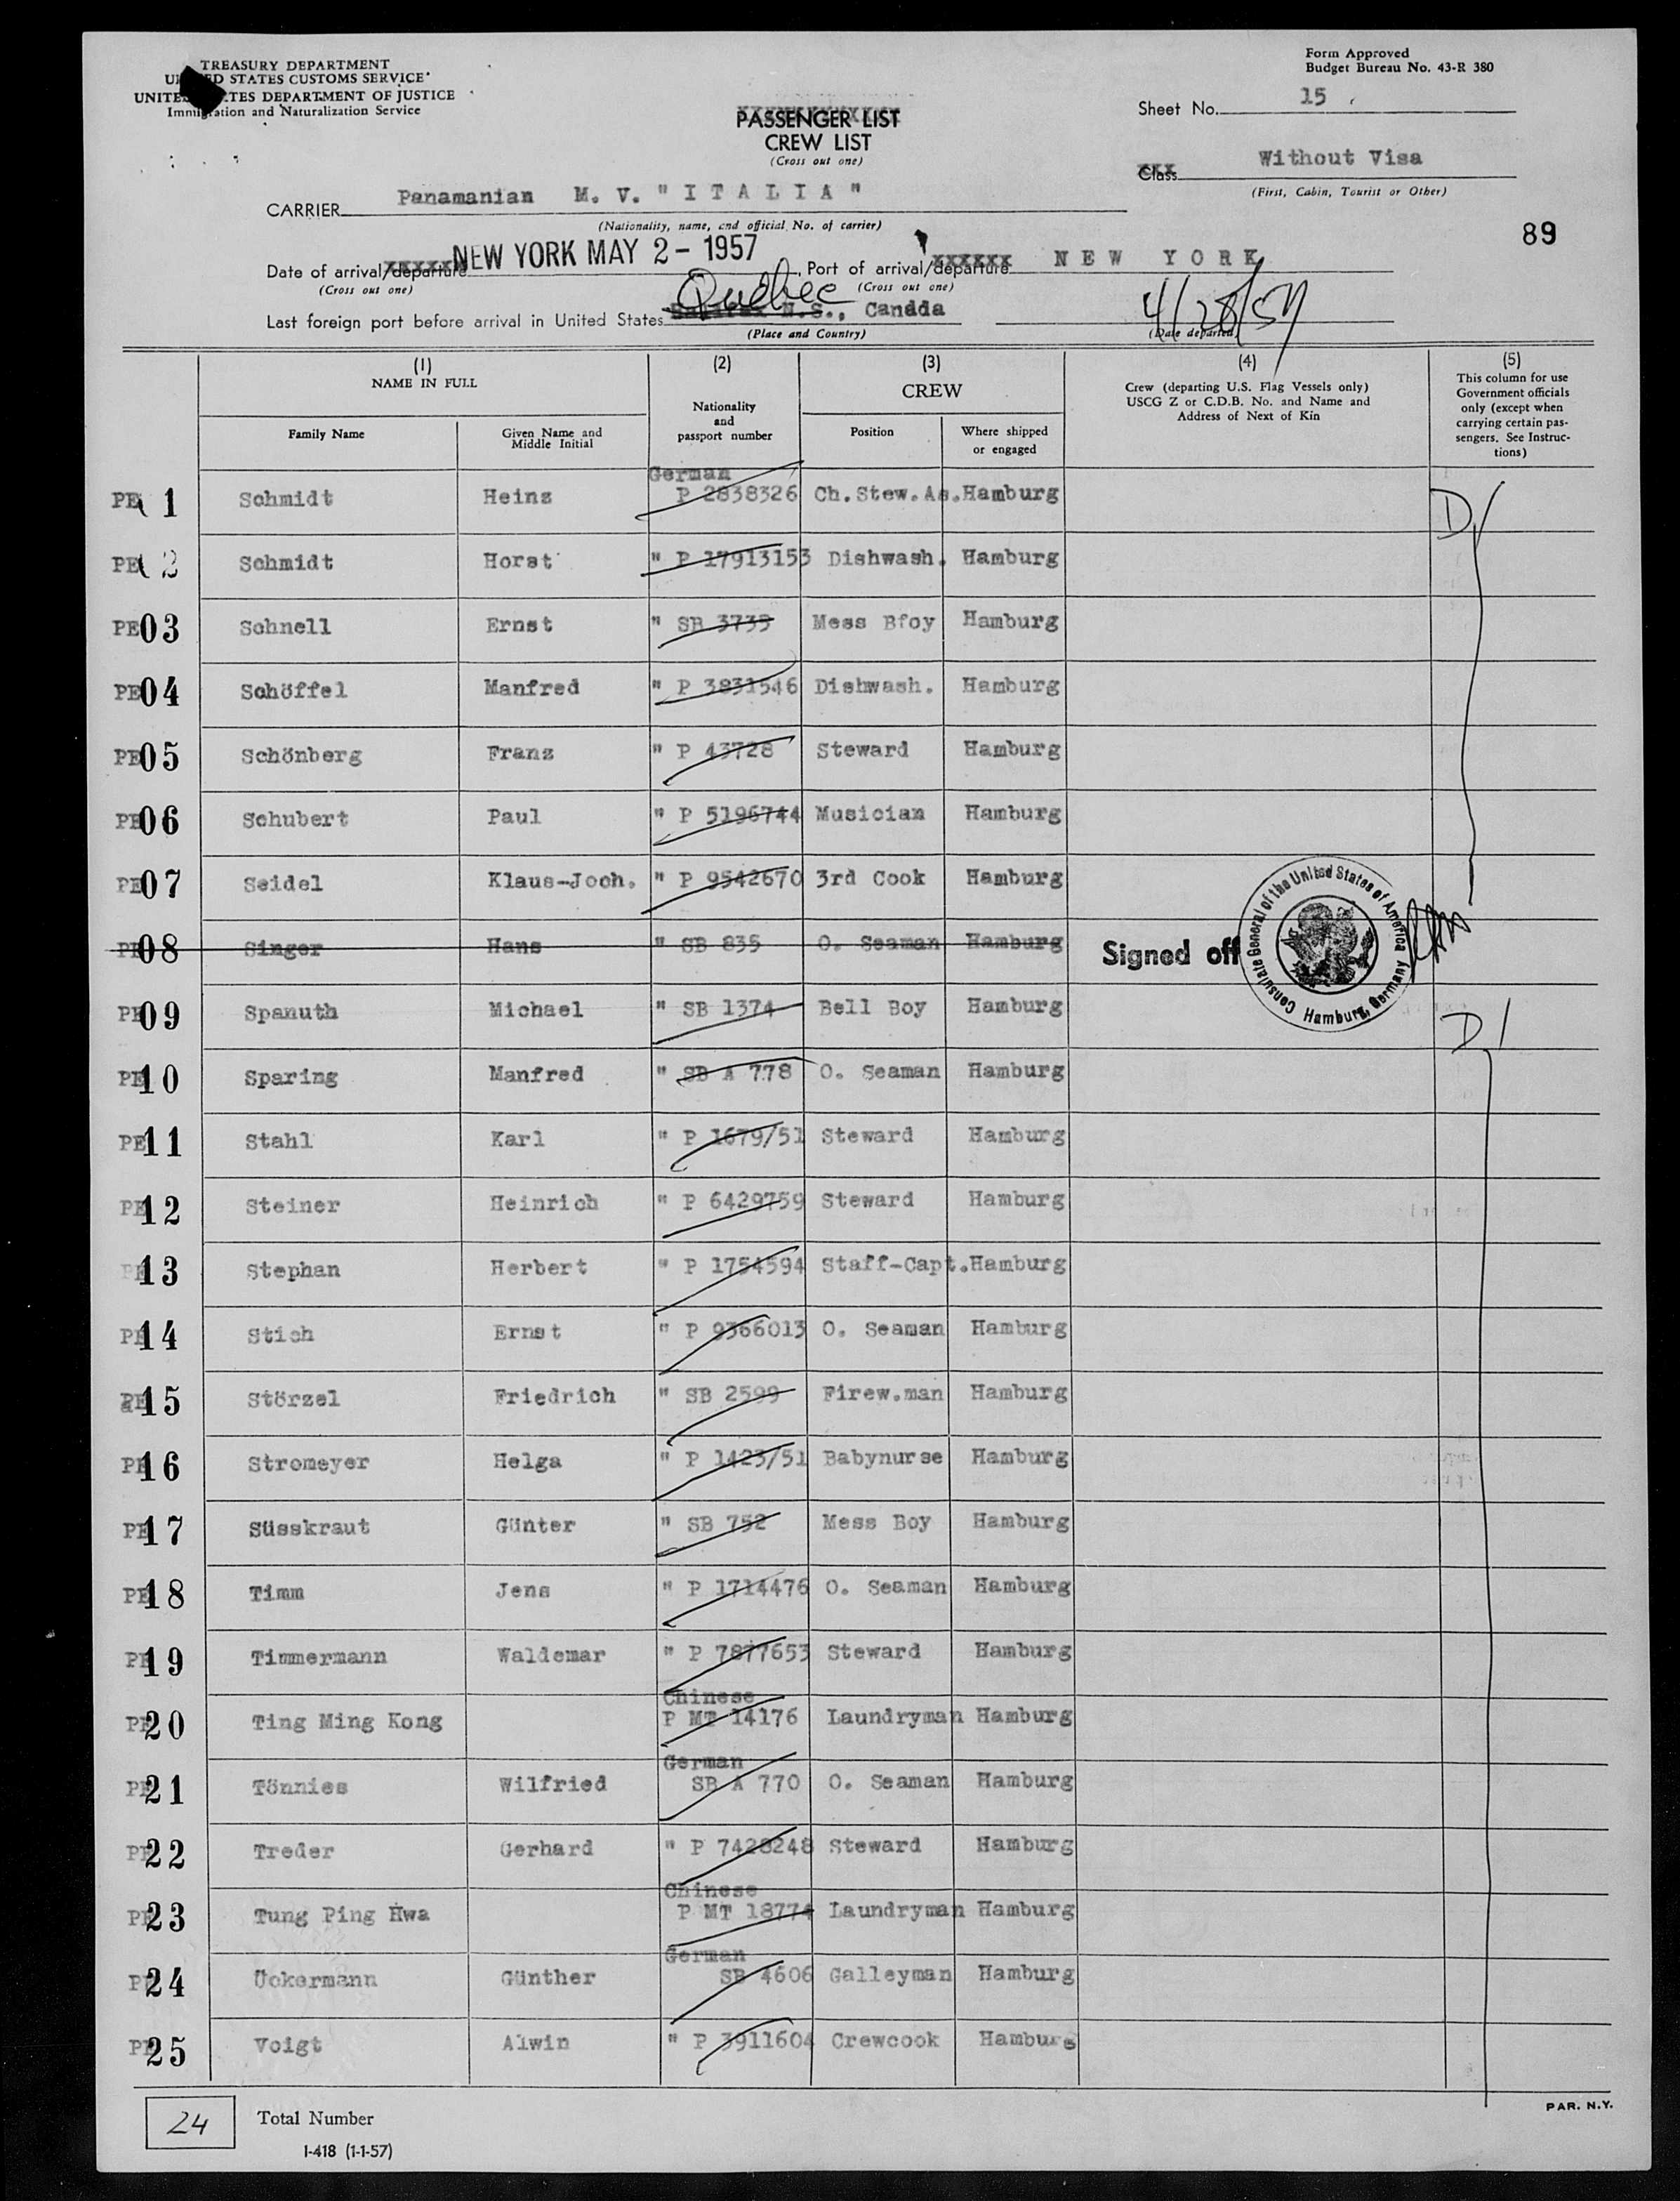 TREASURY DEPARTMENT
UNITED STATES CUSTOMS SERVICE
UNITED STATES DEPARTMENT OF JUSTICE
Immigration and Naturalization Service
Form Approved
Budget Bureau No. 43-R 380
Sheet No. 15
PASSENGER LIST
CREW LIST
(Cross out one)
Class Without Visa
(First, Cabin, Tourist or Other)
CARRIER Panamanian M. V. "ITALIA"
(Nationality, name, and official No. of carrier)
89
Date of arrival/departure NEW YORK MAY 2 - 1957, Port of arrival/departure NEW YORK
(Cross out one) (Cross out one)
Last foreign port before arrival in United States Quebec Halifax N.S., Canada 4/28/57
(Place and Country) (Date departed)
(1) NAME IN FULL
Family Name
Given Name and Middle Initial
(2) Nationality and passport number
(3) CREW
Position
Where shipped or engaged
(4) Crew (departing U.S. Flag Vessels only) USCG Z or C.D.B. No. and Name and Address of Next of Kin
(5) This column for use Government officials only (except when carrying certain passengers. See Instructions)
PE 1 Schmidt Heinz German P 2838326 Ch.Stew.As. Hamburg D
PE 2 Schmidt Horst " P 17913153 Dishwash. Hamburg
PE 03 Schnell Ernst " SB 3735 Mess Bfoy Hamburg
PE 04 Schöffel Manfred " P 3831546 Dishwash. Hamburg
PE 05 Schönberg Franz " P 43728 Steward Hamburg
PE 06 Schubert Paul " P 5196744 Musician Hamburg
PE 07 Seidel Klaus-Joch. " P 9542670 3rd Cook Hamburg
PE 08 Singer Hans " SB 835 O. Seaman Hamburg Signed off
Consulate General of the United States of America Hamburg, Germany
PE 09 Spanuth Michael " SB 1374 Bell Boy Hamburg D
PE 10 Sparing Manfred " SB A 778 O. Seaman Hamburg
PE 11 Stahl Karl " P 1679/51 Steward Hamburg
PE 12 Steiner Heinrich " P 6429759 Steward Hamburg
PE 13 Stephan Herbert " P 1754594 Staff-Capt. Hamburg
PE 14 Stich Ernst " P 9366013 O. Seaman Hamburg
PE 15 Störzel Friedrich " SB 2599 Firew.man Hamburg
PE 16 Stromeyer Helga " P 1423/51 Babynurse Hamburg
PE 17 Süsskraut Günter " SB 752 Mess Boy Hamburg
PE 18 Timm Jens " P 1714476 O. Seaman Hamburg
PE 19 Timmermann Waldemar " P 7877653 Steward Hamburg
PE 20 Ting Ming Kong Chinese P MT 14176 Laundryman Hamburg
PE 21 Tönnies Wilfried German SB A 770 O. Seaman Hamburg
PE 22 Treder Gerhard " P 7428248 Steward Hamburg
PE 23 Tung Ping Hwa Chinese P MT 18774 Laundryman Hamburg
PE 24 Uckermann Günther German SB 4606 Galleyman Hamburg
PE 25 Voigt Alwin " P 3911604 Crewcook Hamburg
24 Total Number
I-418 (1-1-57)
PAR. N.Y.